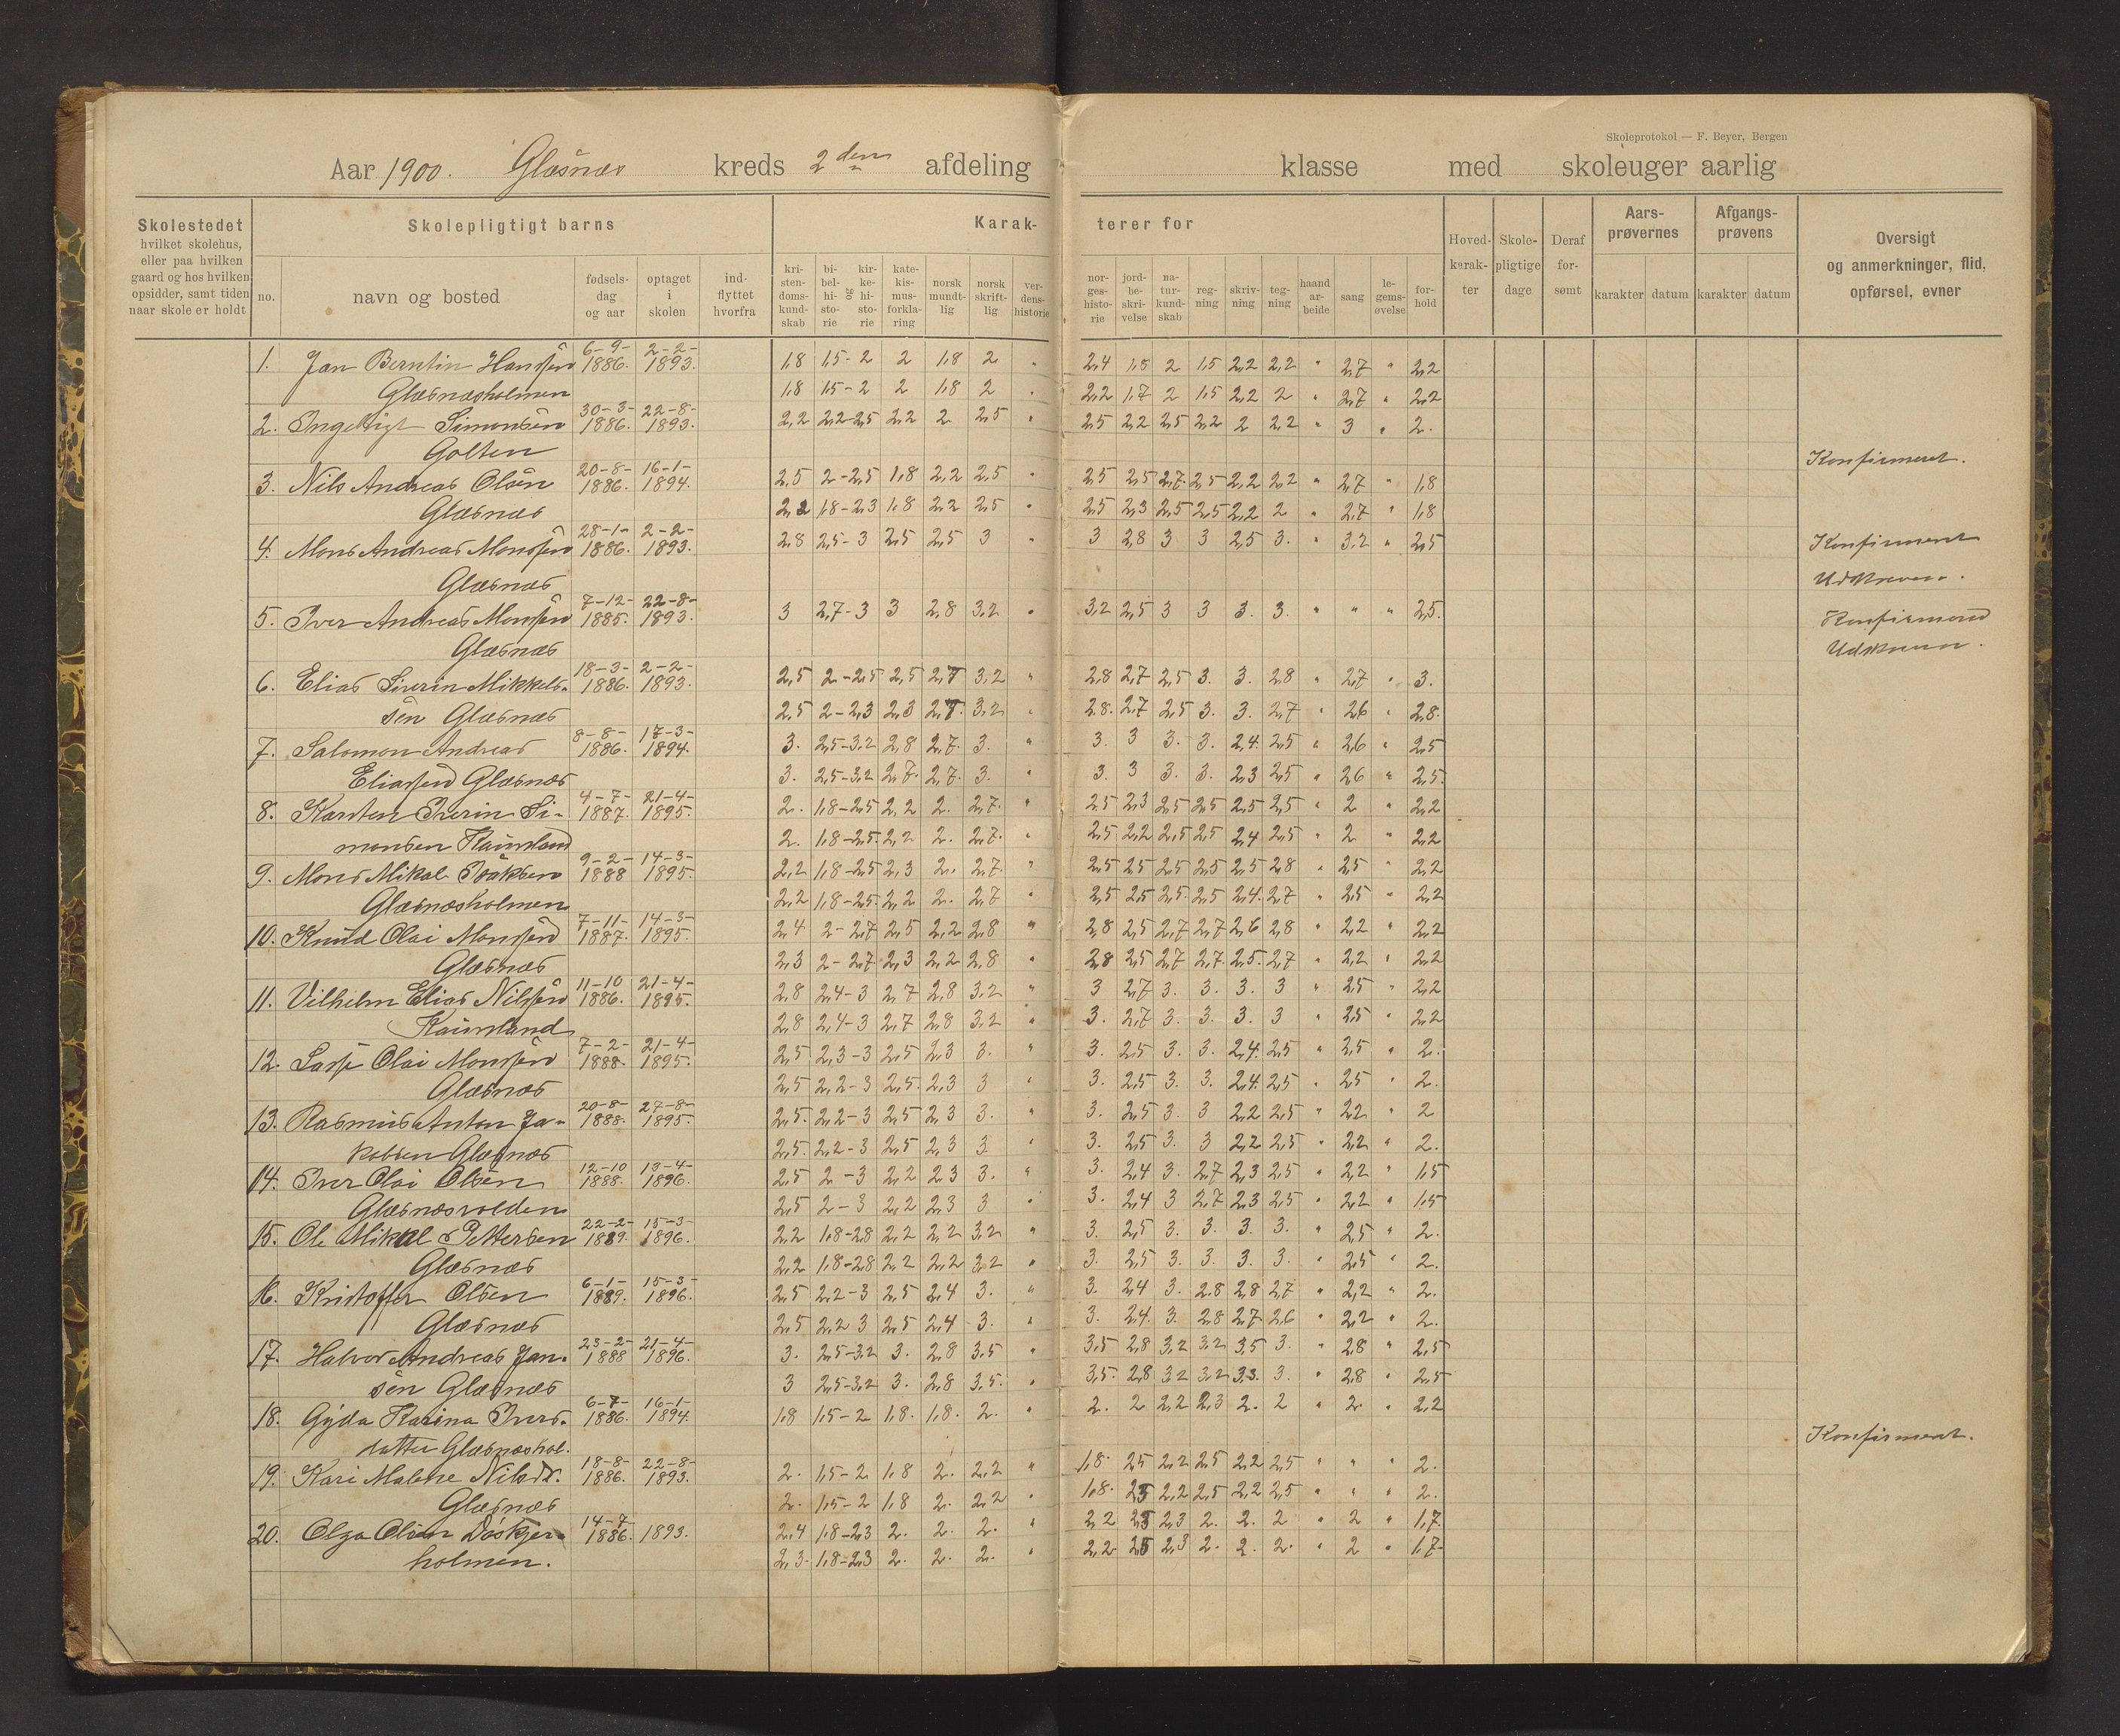 Skoleprotokol — F. Beyer, Bergen
Aar 1900. Glæsnæs kreds 2den afdeling klasse med skoleuger aarlig
Skolestedet hvilket skolehus, eller paa hvilken gaard og hos hvilken opsidder, samt tiden naar skole er holdt
Skolepligtigt barns
no. navn og bosted fødsels-dag og aar optaget i skolen ind-flyttet hvorfra
Karak-terer for
kri-sten-doms-kund-skab bi-bel-hi-sto-rie og kir-ke-hi-sto-rie kate-kis-mus-forkla-ring norsk mundt-lig norsk skrift-lig ver-dens-historie
nor-ges-histo-rie jord-be-skri-velse na-tur-kund-skab reg-ning skriv-ning teg-ning haand ar-beide sang le-gems-øvelse for-hold
Hoved-karak-ter Skole-pligtige dage Deraf for-sømt
Aars-prøvernes karakter datum Afgangs-prøvens karakter datum
Oversigt og anmerkninger, flid, opførsel, evner
1. Jan Berntin Hanssen 6-9-1886. 2-2-1893. 1,8 1,5-2 2 1,8 2 " 2,4 1,5 2 1,5 2,2 2,2 " 2,7 " 2,2
Glæsnæsholmen 1,8 1,5-2 2 1,8 2 " 2,2 1,7 2 1,5 2,2 2 " 2,7 " 2,2
2. Simonsen 30-3-1886. 22-8-1893. 2,2 2,2-2,5 2,2 2 2,5 " 2,5 2,2 2,5 2,2 2 2,2 " 3 " 2.
Golten Konfirmeret.
3. Nils Andreas Olsen 20-8-1886. 16-1-1894. 2,5 2-2,5 1,8 2,2 2,5 " 2,5 2,5 2,7 2,5 2,2 2,2 " 2,7 " 1,8
Glæsnæs 2,2 1,8-2,3 1,8 2,2 2,5 " 2,5 2,3 2,5 2,5 2,2 2 " 2,7 " 1,8
4. Mons Andreas Monssen 28-1-1886. 2-2-1893. 2,8 2,5-3 2,5 2,5 3 " 3 2,8 3 3 2,5 3. " 3,2 " 2,5 Konfirmeret
Glæsnæs Udskreven.
5. Iver Andreas Monssen 7-12-1885. 22-8-1893. 3 2,7-3 3 2,8 3,2 " 3,2 2,5 3 3 3. 3. " " " 2,5. Konfirmered
Glæsnæs Udskreven.
6. Elias Severin Mikkels- 18-3-1886. 2-2-1893. 2,5 2-2,5 2,5 2,7 3,2 " 2,8 2,7 2,5 3. 3. 2,8 " 2,7 " 3.
sen Glæsnæs 2,5 2-2,3 2,3 2,7. 3,2 " 2,8. 2,7 2,5 3. 3. 2,7 " 2,6 " 2,8.
7. Salomon Andreas 8-8-1886. 17-3-1894. 3. 2,5-3,2 2,8 2,7. 3. " 3. 3 3. 3. 2,4. 2,5 " 2,6 " 2,5
Eliassen Glæsnæs 3. 2,5-3,2 2,7. 2,7. 3. " 3. 3 3. 3. 2,3 2,5 " 2,6 " 2,5.
8. Karsten Iverin Si- 4-7-1887. 21-4-1895. 2. 1,8-2,5 2,2 2. 2,7. " 2,5 2,3 2,5 2,5 2,5 2,5 " 2 " 2,2
monsen Kausland 2. 1,8-2,5. 2,2 2. 2,7. " 2,5 2,2 2,5 2,5 2,4 2,5 " 2 " 2,2
9. Mons Mikal Isaksen 9-2-1888 14-3-1895. 2,2 1,8-2,5 2,3 2. 2,7. " 2,5 2,5 2,5 2,5 2,5 2,8 " 2,5 2,2
Glæsnæsholmen 2,2 1,8-2,5. 2,2 2. 2,7 " 2,5 2,5 2,5. 2,5 2,4. 2,7 " 2,5 " 2,2
10. Knud Olai Monssen 7-11-1887. 14-3-1895. 2,4 2-2,7 2,5 2,2 2,8 " 2,8 2,5 2,7 2,7 2,6 2,8 " 2,2 " 2,2
Glæsnæs 2,3 2-2,7. 2,3 2,2 2,8 " 2,8 2,5 2,7 2,7. 2,5. 2,7 " 2,2 " 2,2
11. Vilhelm Elias Nilssen 11-10 1886. 21-4-1895. 2,8 2,4-3 2,7 2,8 3,2 " 3 2,7 3. 3. 3. 3 " 2,5 " 2,2
Kausland 2,8 2,4-3 2,7 2,8 3,2 " 3. 2,7 3. 3. 3. 3 " 2,5 " 2,2
12. Lasse Olai Monssen 7-2-1888. 21-4-1895. 2,5 2,3-3 2,5 2,3 3. " 3. 2,5 3. 3. 2,4. 2,5 " 2,5 " 2.
Glæsnæs 2,5 2,2-3 2,5. 2,3 3 " 3. 2,5 3. 3. 2,4. 2,5 " 2,5 " 2.
13. Rasmus Anton Ja- 20-8-1888. 27-8-1895. 2,5. 2,2-3 2,5 2,3 3. " 3. 2,5 3. 3 2,2 2,5 " 2,2 " 2
kobsen Glæsnæs 2,5. 2,2-3 2,5 2,3 3 " 3. 2,5 3. 3 2,2 2,5 " 2,2 " 2.
14. Iver Olai Olsen 12-10 1888. 13-4-1896. 2,5 2-3 2,2 2,3 3. " 3. 2,4 3. 2,7 2,3 2,5 " 2,2 " 1,5
Glæsnæsvolden 2,5 2-3 2,2 2,3 3 " 3. 2,4 3 2,7 2,3 2,5 " 2,2 " 1,5
15. Ole Mikal Pettersen 22-2-1889. 15-3-1896. 2,2 1,8-2,8 2,2 2,2 3,2 " 3. 2,5 3. 3. 3. 3. " 2,5 " 2.
Glæsnæs 2,2 1,8-2,8 2,2 2,2 3,2 " 3. 2,5 3. 3. 3. 3. " 2,5 " 2.
16. Kristoffer Olsen 6-1-1889. 15-3-1896. 2,5 2,2-3 2,5 2,4 3. " 3. 2,4 3. 2,8 2,8 2,7 " 2,2 " 2.
Glæsnæs 2,5 2,2 3 2,5 2,4 3. " 3. 2,4. 3. 2,8 2,7. 2,6 " 2,2 " 2.
17. Halvor Andreas Jan- 23-2-1888 21-4-1896. 3. 2,5-3,2 3. 2,8 3,5 " 3,5 2,8 3,2 3,2 3,5 3. " 2,8 " 2,5
sen Glæsnæs 3 2,5-3,2 3. 2,8 3,5. " 3,5. 2,8 3,2 3,2 3,3. 3. " 2,8 " 2,5
18. Gyda Karina Ivers- 6-7-1886. 16-1-1894. 1,8 1,5-2 1,8. 1,8. 2. " 2. 2 2,2 2,3 2. 2 " 2. " 2,2
datter Glæsnæshol. Konfirmeret.
19. Kari Malene Nilsd. 18-8-1886. 22-8-1893. 2. 1,5-2 1,8 2. 2,2 " 1,8. 2,5 2,2 2,5 2,2 2,5 " " " 2.
Glæsnæs 2. 1,5-2 1,8 2. 2,2 " 1,8. 2,5 2,2 2,5 2,2 2,5 " " " 2.
20. Olga Olsen 14-7-1886. 1893. 2,4 1,8-2,3 2. 2. 2. " 2,2 2,5 2,3 2. 2. 2 " 2 " 1,7.
holmen. 2,3. 1,8-2,3 2. 2. 2. " 2,2 2,5 2,3 2. 2. 2. " 2 " 1,7